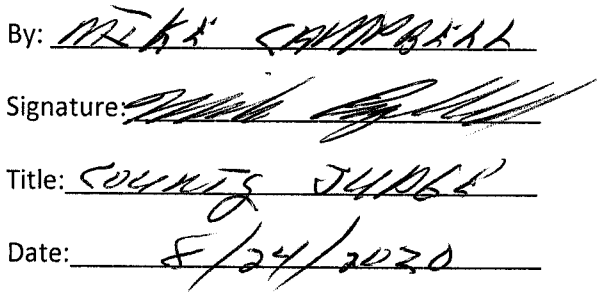 By: MIKE CAMPBELL
Signature: Mike Campbell
Title: COUNTY JUDGE
Date: 8/24/2020